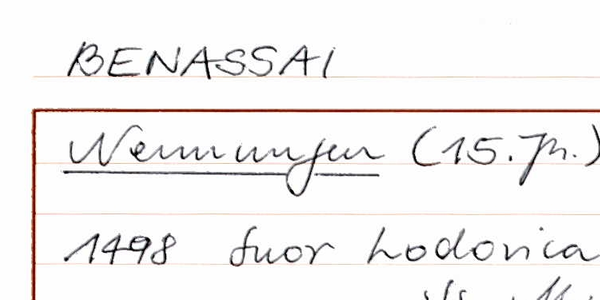 BENASSAI
Nennungen (15. Jh.)
1498 Suor Lodovica